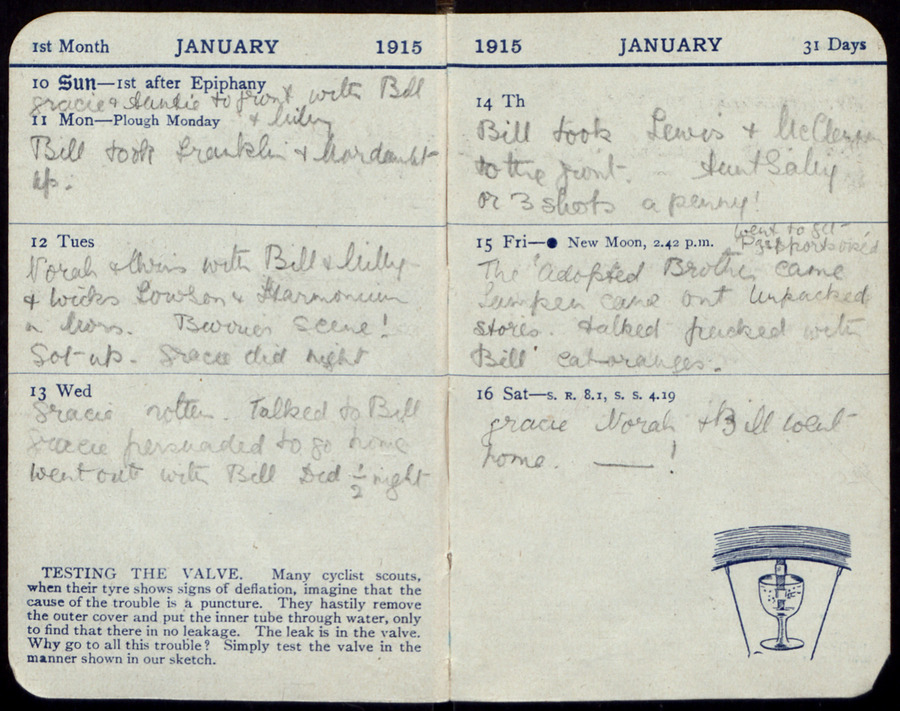 1st Month JANUARY 1915
10 Sun—1st after Epiphany
gracie & Auntie to front with Bill
11 Mon—Plough Monday & Milly
Bill took Franklin & Mordaunt
up.
12 Tues
Norah & with Bill & Milly
& Wicks & Harmonium
Scene!
Got up. Gracie did night
13 Wed
Gracie rotten. Talked to Bill
Gracie persuaded to go home
Went out with Bill Did ½ night
TESTING THE VALVE. Many cyclist scouts,
when their tyre shows signs of deflation, imagine that the
cause of the trouble is a puncture. They hastily remove
the outer cover and put the inner tube through water, only
to find that there in no leakage. The leak is in the valve.
Why go to all this trouble? Simply test the valve in the
manner shown in our sketch.
1915 JANUARY 31 Days
14 Th
Bill took Lewis &
to the front. Aunt Sally
or 3 shots a penny!
went to get
15 Fri—● New Moon, 2.42 p.m.
The adopted Brother came
came out Unpacked
stores. talked packed with
Bill eat oranges.
16 Sat—S. R. 8.1, S. S. 4.19
gracie Norah & Bill went
home. —— !